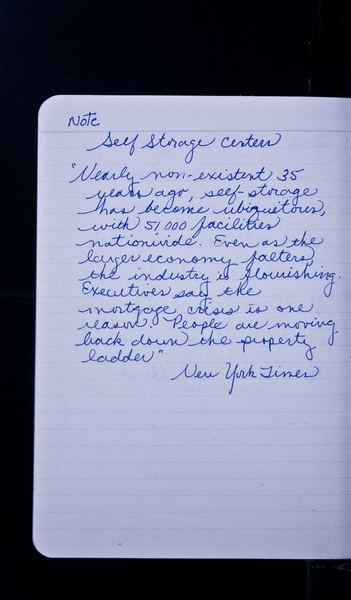 Note
Self Storage Centers
"Nearly non-existent 35
years ago, self-storage
has become ubiquitous,
with 51,000 facilities
nationwide. Even as the
larger economy falters,
the industry is flourishing.
Executives say the
mortgage crisis is one
reason: People are moving
back down the property
ladder"
New York Times